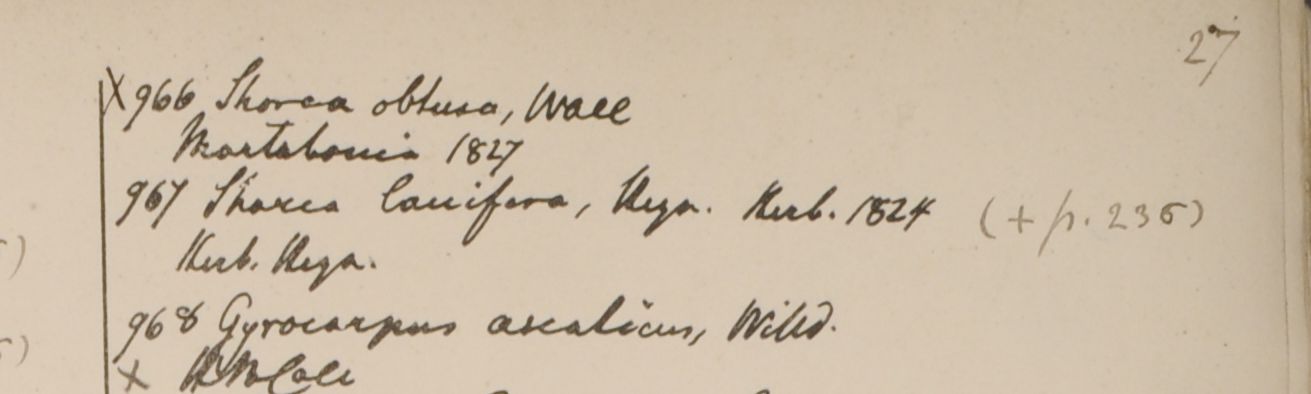 27
X 966 Shorea obtusa, Wall
Martabania 1827
967 Shorea laccifera, Heyn. Herb. 1824 (+ p. 235)
Herb. Heyn.
968 Gyrocarpus asiaticus, Willd.
X